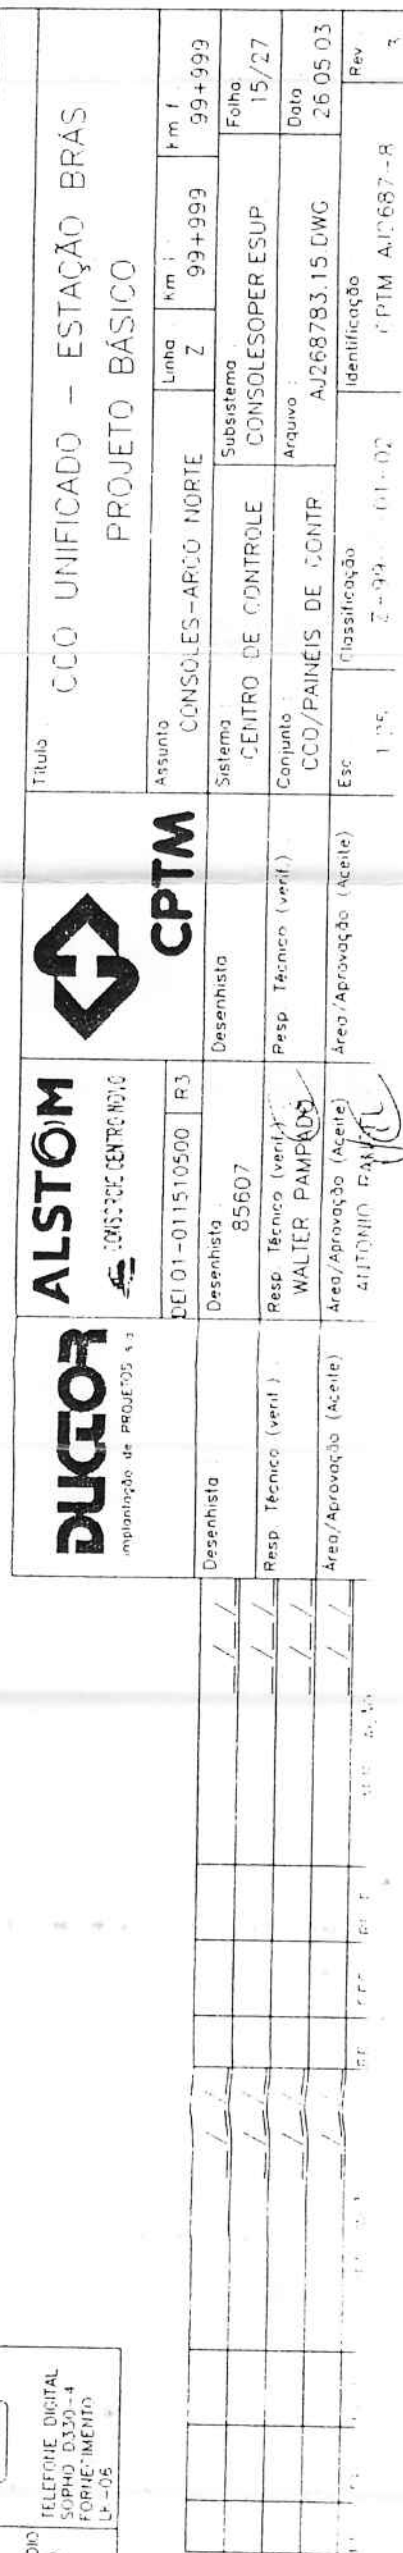 TELEFONE DIGITAL
SOPHO D330-4
FORNECIMENTO
LK-06
DUCTOR
implantação de PROJETOS s a
Desenhista
Resp. Técnico (verif.)
Área/Aprovação (Aceite)
ALSTOM
CONSORCIE CENTRO NOVO
DEI 01-011510500 R3
Desenhista
85607
Resp. Técnico (verif.)
WALTER PAMPADO
Área/Aprovação (Aceite)
ANTONIO
CPTM
Desenhista
Resp. Técnico (verif.)
Área/Aprovação (Aceite)
Título
CCO UNIFICADO - ESTAÇÃO BRÁS
PROJETO BÁSICO
Assunto
CONSOLES-ARCO NORTE
Linha
Z
km i
99+999
km f
99+999
Sistema
CENTRO DE CONTROLE
Subsistema
CONSOLESOPER ESUP
Folha
15/27
Conjunto
CCO/PAINÉIS DE CONTR
Arquivo :
AJ268783.15.DWG
Data
26 05 03
Esc
Classificação
Identificação
CPTM AJ2687-8
Rev
3